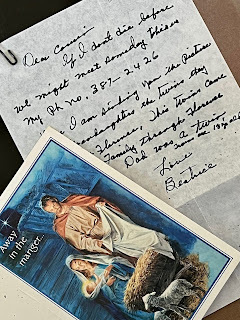 Dear Cousin
If I don't die before
we might meet someday this is
My Ph No. 387-2426
I am sending you the picture
granddaughters the twins they
Florence, This Twins came
Family through Florence
Dad was a twin
Love
Beatrice
Away in
the manger...